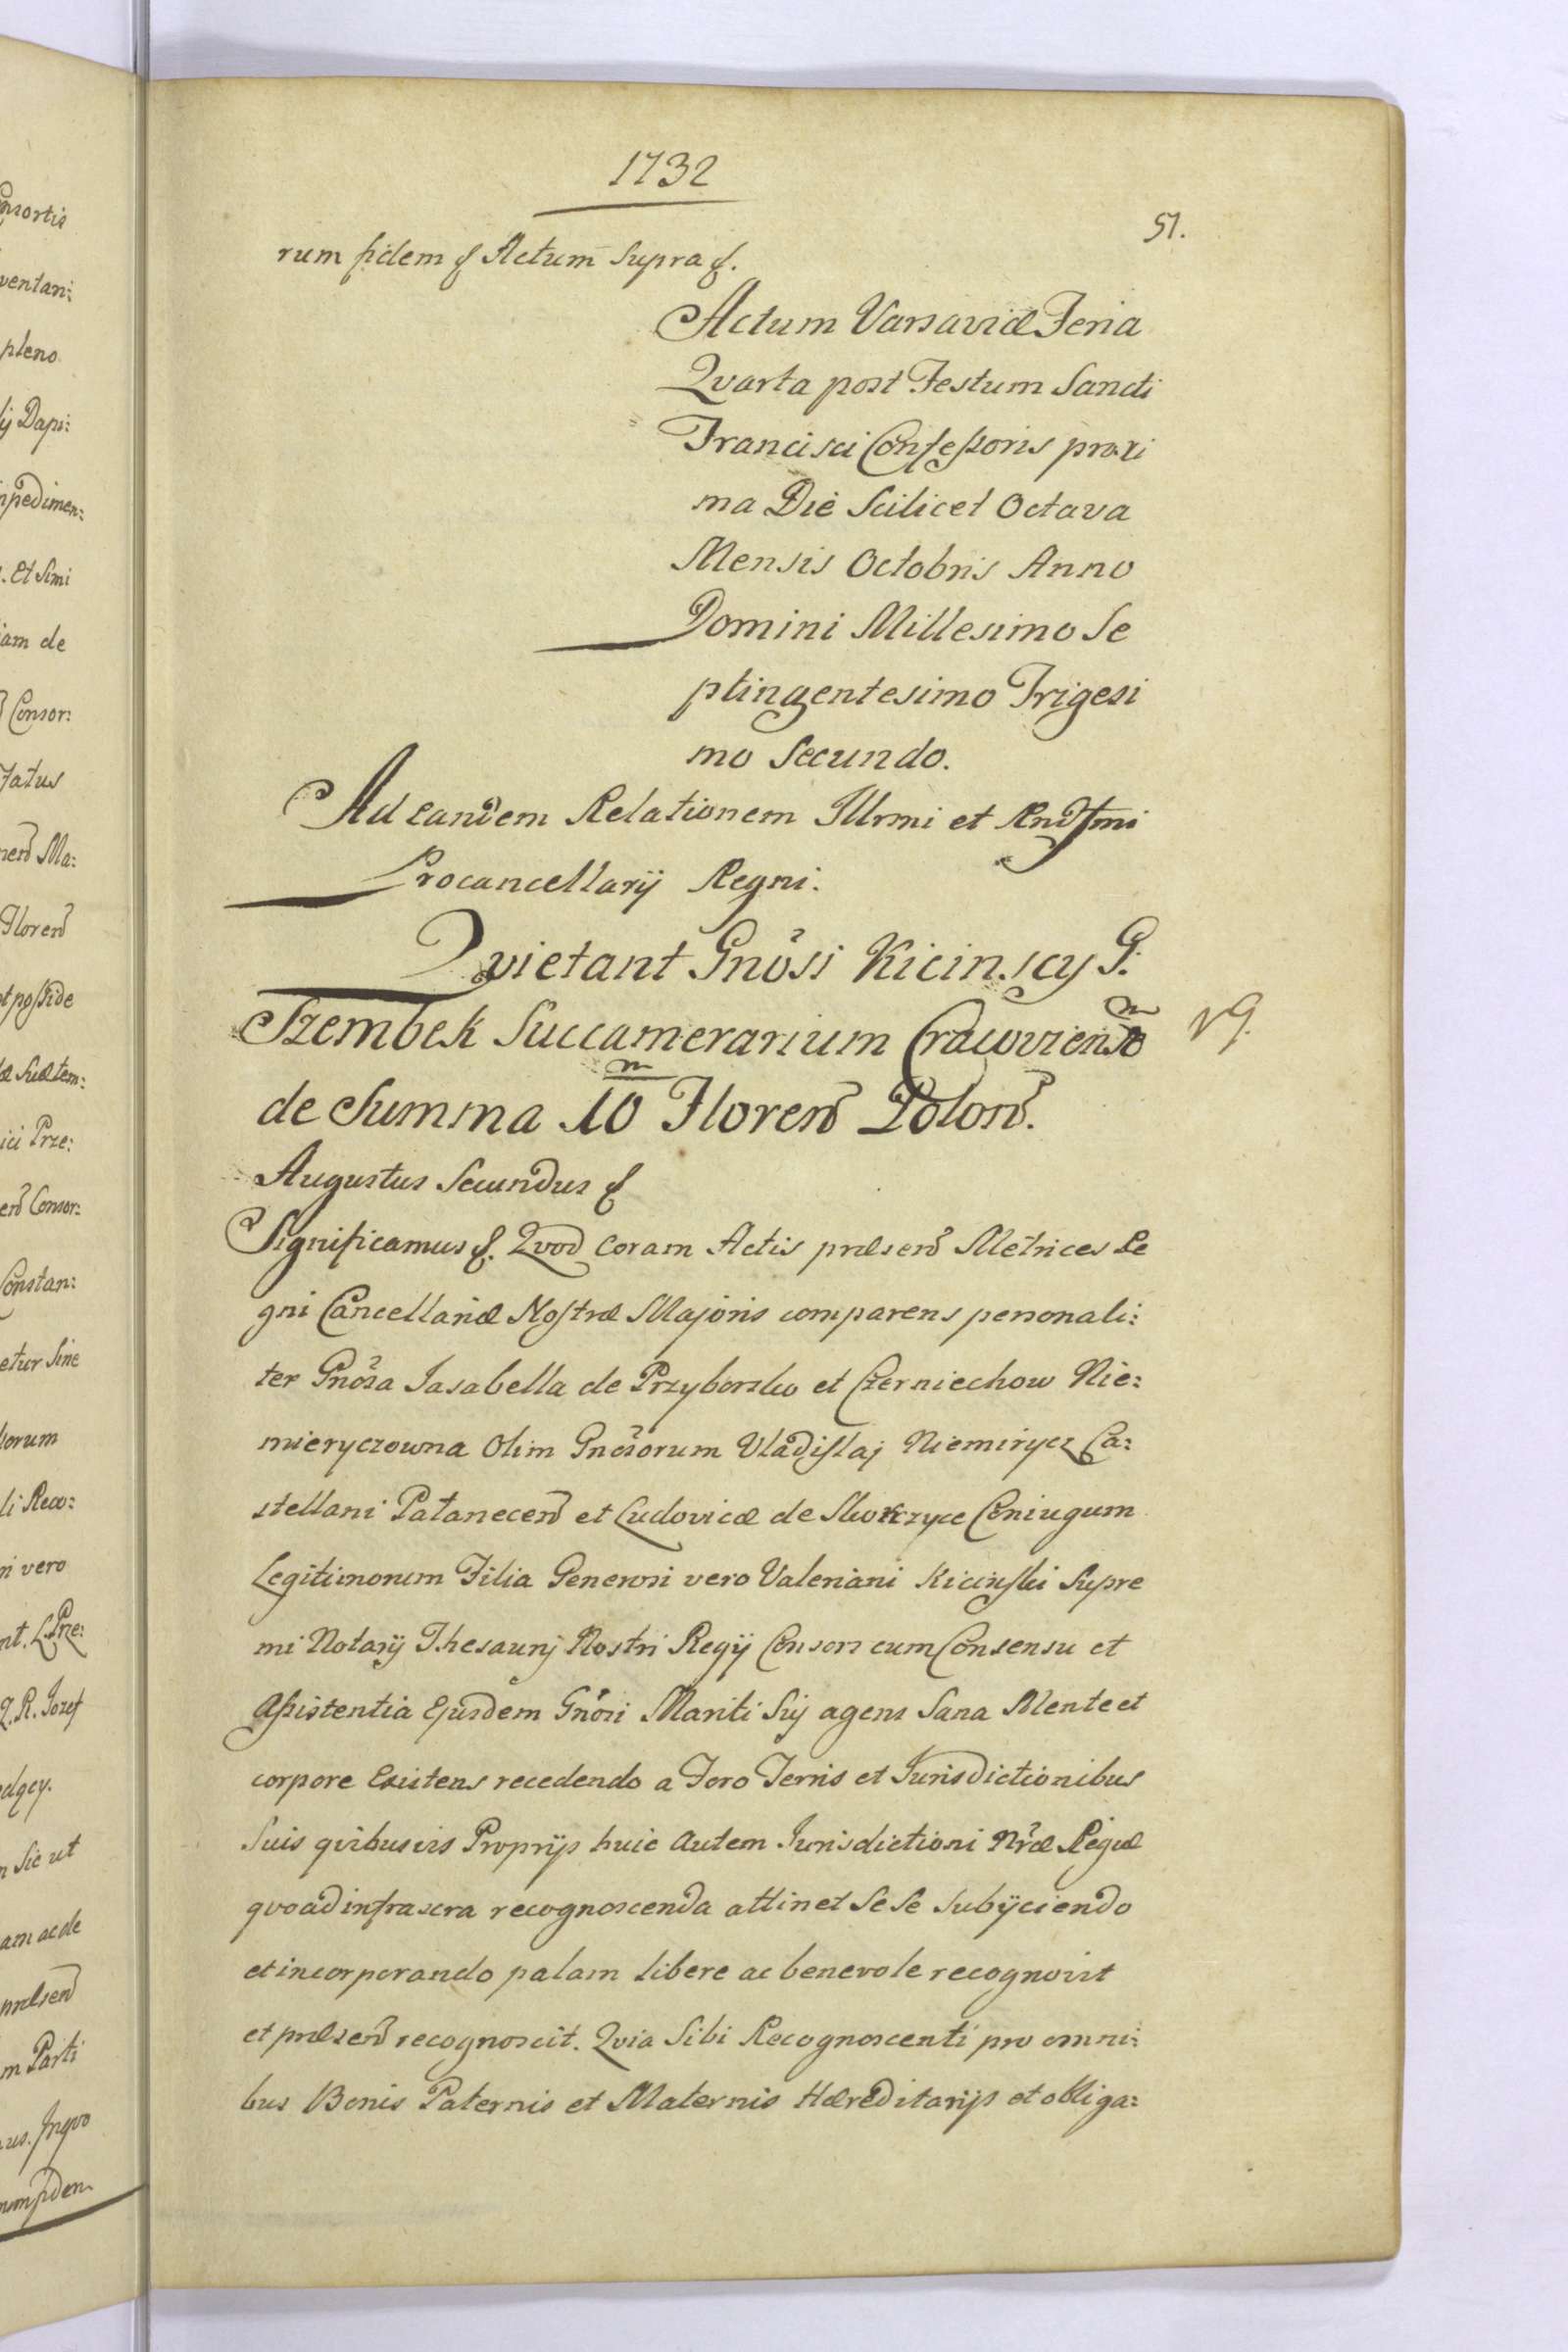 1732
51.
rum fidem &. Actum Supra &.
Actum Varsaviæ Feria
Qvarta post Festum Sancti
Francisci Confeßoris proxi
ma Die Scilicet Octava
Mensis Octobris Anno
Domini Millesimo Se
ptingentesimo Trigesi
mo Secundo.
Ad eandem Relationem Illrmi et Rndssmi
Procancellarij Regni.
Qvietant Gnosi Kicinscy G.
Szembek Succamerarium Cracovien̄
de Summa 10 m̄ Floren̄ Polon̄.
Augustus Secundus &
Significamus &. Qvod Coram Actis præsen̄ Metrices Re
gni Cancellariæ Nostræ Majoris comparens personali:
ter Gnosa Jasabella de Przyborsko et Czerniechow Nie:
mieryczowna Olim Gnosorum Vladislaj Niemirycz Ca:
stellani Patanecen̄ et Ludovicæ de Skokrzyce Coniugum
Legitimorum Filia Generosi vero Valeriani Kicinski Supre
mi Notarij Thesaurj Nostri Regij Consors cum Consensu et
Aßistentia Ejusdem Gnosi Mariti Sij agens Sana Mente et
corpore Existens recedendo a Foro Terris et Jurisdictionibus
Suis qvibusvis Proprijs huic Autem Jurisdictioni Nræ Regiæ
qvoad infrascra recognoscenda attinet Se Se Subijciendo
et incorporando palam libere ac benevole recognovit
et præsen̄ recognoscit. Qvia Sibi Recognoscenti pro omni:
bus Bonis Paternis et Maternis Hæreditarijs et obliga: